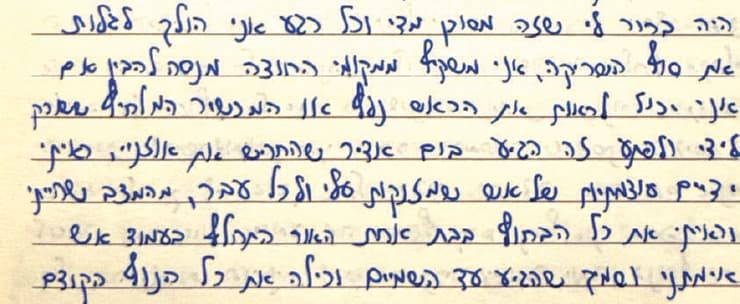 היה ברור לי שזה מסוכן מדי וכל רגע אני הולך לגלות
את סוף הסריקה, אני משקיף ממקומי החוצה מנסה להבין אם
אני יכול לראות את הראש נוף או המכשיר המלחיף ששרק
לידי ולפתע זה הגיע בום אדיר שהחריש את אוזניי, ראיתי
ידיים עוצמתיות של אש שמזנקות עלי ולכל עבר, מהמצב שהייתי
וראיתי את כל הבחוץ בבת אחת האור התחלף בעמוד אש
אימתני ושמיך שהגיע עד השמיים וכילה את כל הנוף הקודם